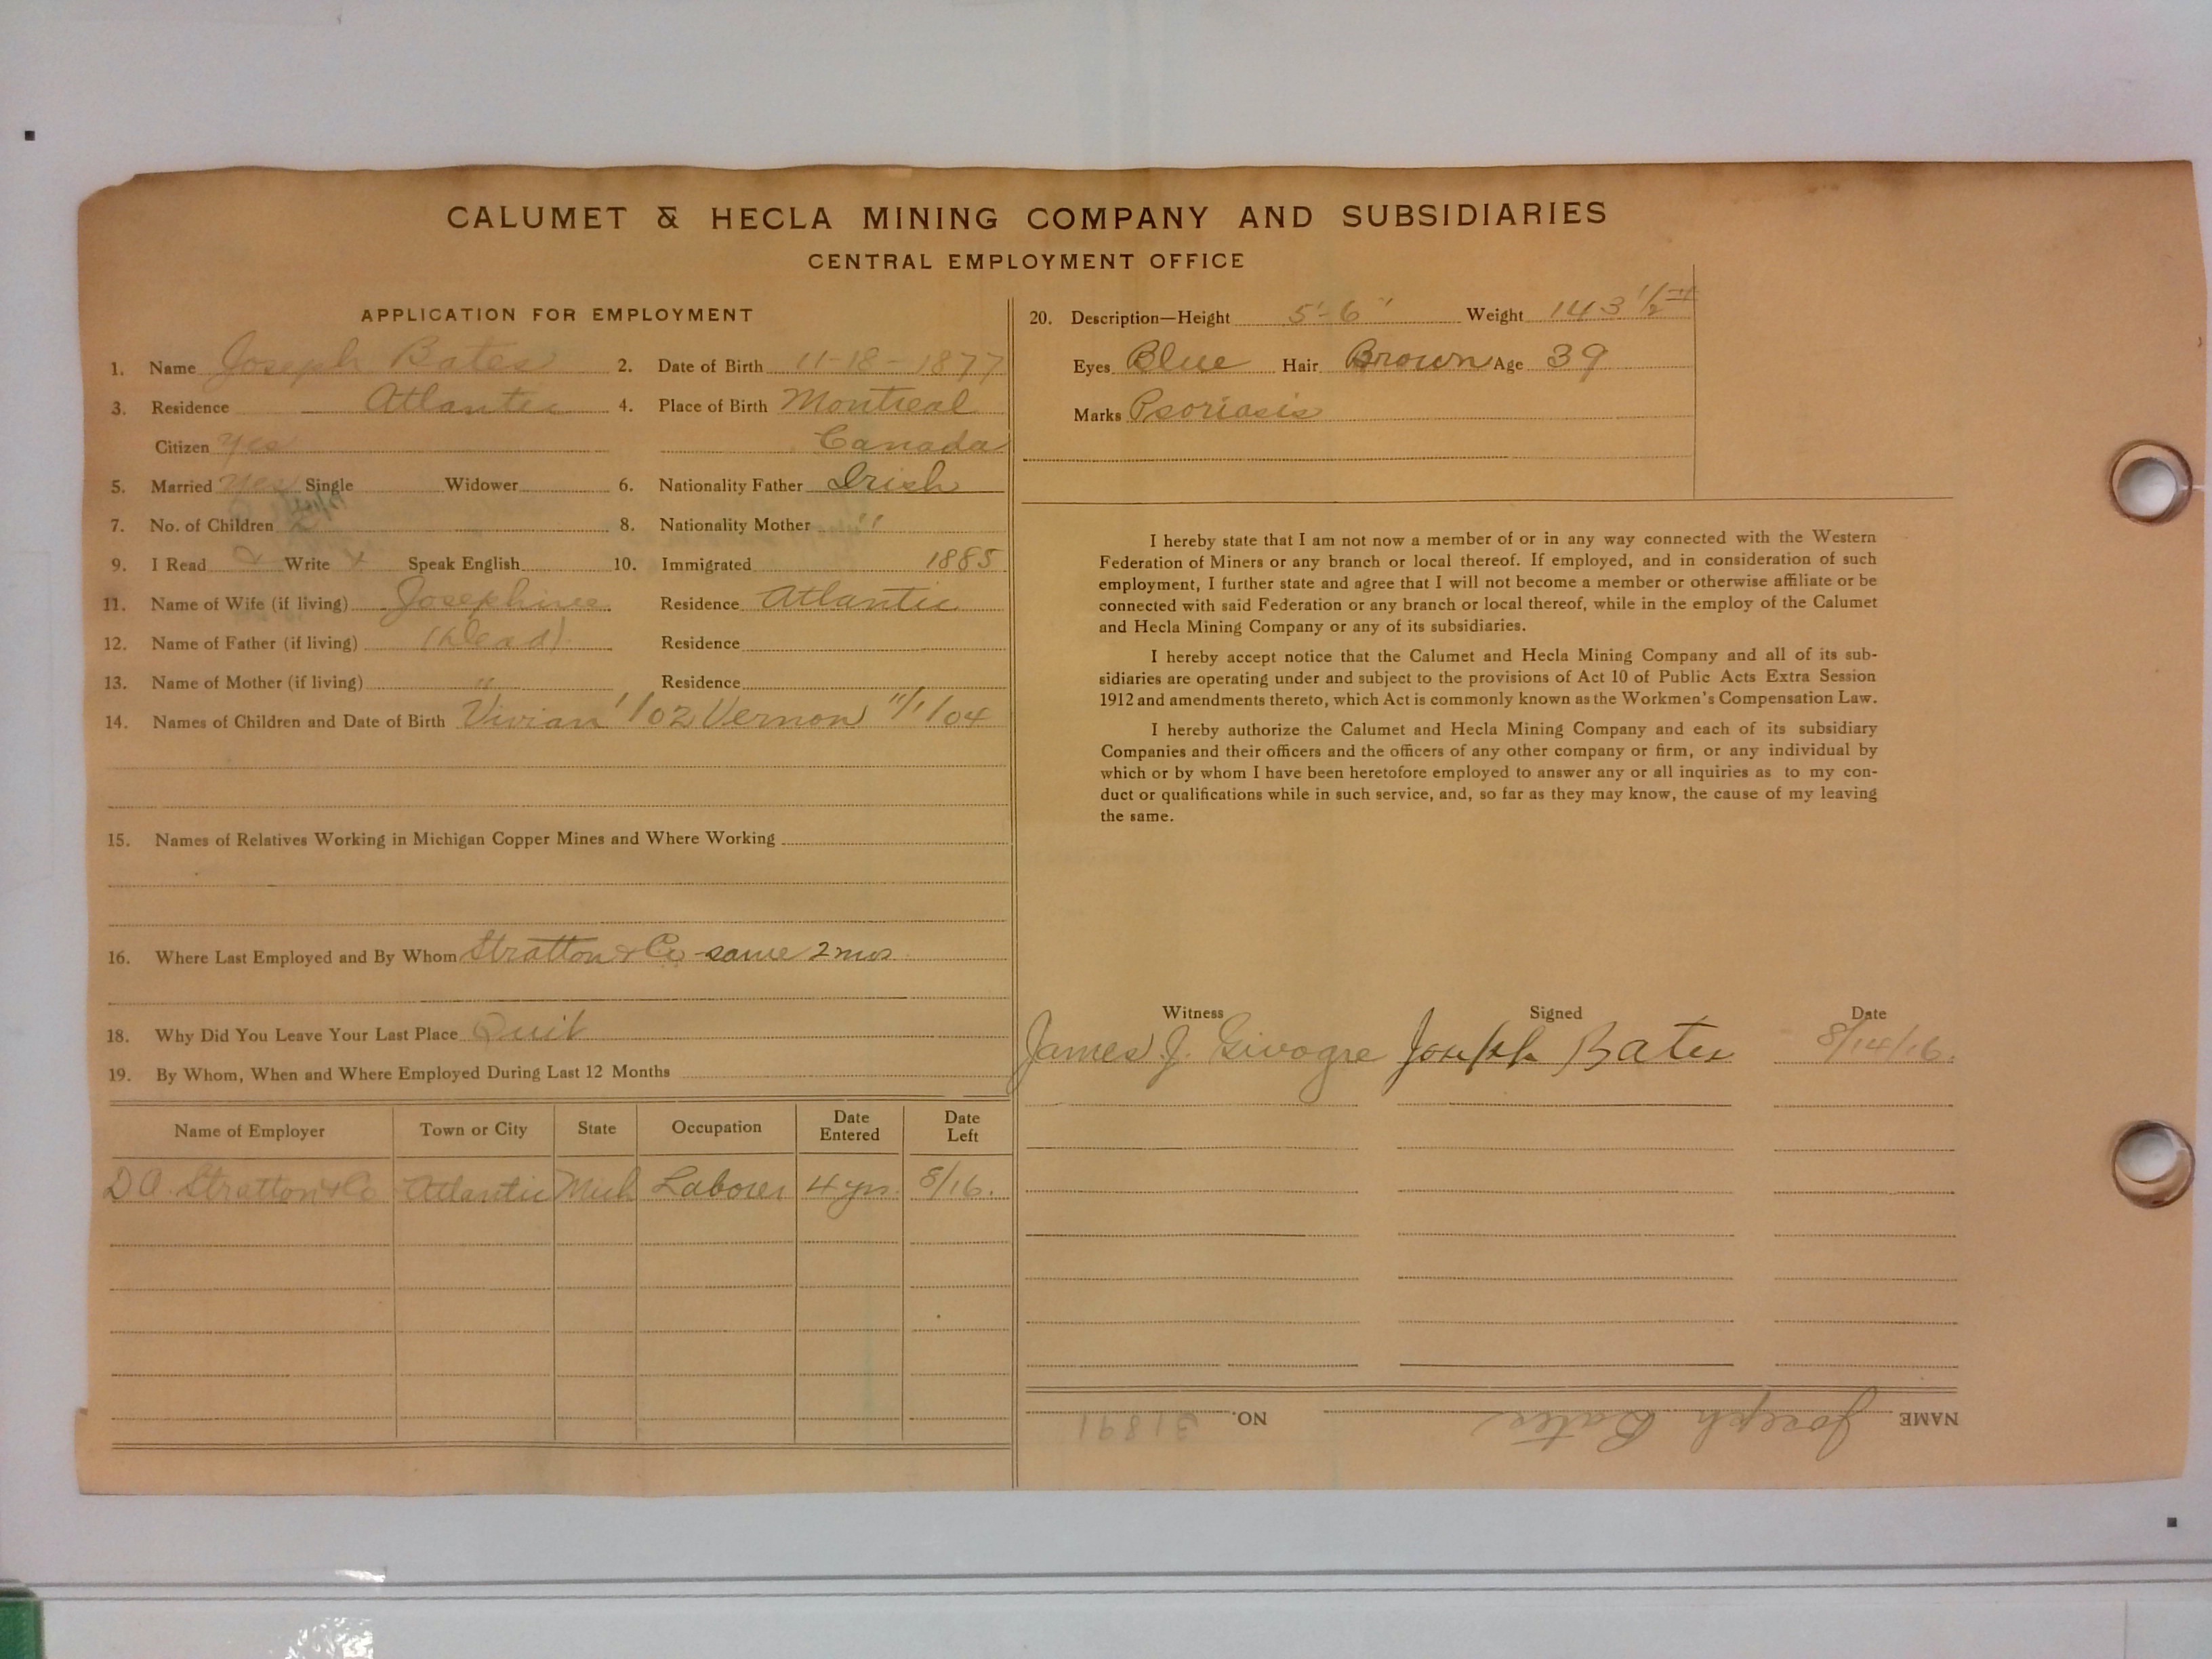 CALUMET & HECLA MINING COMPANY AND SUBSIDIARIES
CENTRAL EMPLOYMENT OFFICE
APPLICATION FOR EMPLOYMENT
1. Name Joseph Bates 2. Date of Birth 11-18-1877
3. Residence Atlantic 4. Place of Birth Montreal
Citizen yes Canada
5. Married yes Single Widower 6. Nationality Father Irish
7. No. of Children 2 8. Nationality Mother "
9. I Read Write Speak English 10. Immigrated 1885
11. Name of Wife (if living) Josephine Residence Atlantic
12. Name of Father (if living) (Dead) Residence
13. Name of Mother (if living) " Residence
14. Names of Children and Date of Birth Vivian 1/02 Vernon 11/1/04
15. Names of Relatives Working in Michigan Copper Mines and Where Working
16. Where Last Employed and By Whom Stratton & Co - same 2 mos
18. Why Did You Leave Your Last Place Quit
19. By Whom, When and Where Employed During Last 12 Months
Name of Employer Town or City State Occupation Date Entered Date Left
D A. Stratton & Co Atlantic Mich Laborer 4 yrs. 8/16.
20. Description—Height 5'-6" Weight 143 1/2 #
Eyes Blue Hair Brown Age 39
Marks Psoriasis
I hereby state that I am not now a member of or in any way connected with the Western
Federation of Miners or any branch or local thereof. If employed, and in consideration of such
employment, I further state and agree that I will not become a member or otherwise affiliate or be
connected with said Federation or any branch or local thereof, while in the employ of the Calumet
and Hecla Mining Company or any of its subsidiaries.
I hereby accept notice that the Calumet and Hecla Mining Company and all of its sub-
sidiaries are operating under and subject to the provisions of Act 10 of Public Acts Extra Session
1912 and amendments thereto, which Act is commonly known as the Workmen's Compensation Law.
I hereby authorize the Calumet and Hecla Mining Company and each of its subsidiary
Companies and their officers and the officers of any other company or firm, or any individual by
which or by whom I have been heretofore employed to answer any or all inquiries as to my con-
duct or qualifications while in such service, and, so far as they may know, the cause of my leaving
the same.
Witness Signed Date
James J. Joseph Bates 8/14/16.
NAME Joseph Bates NO. 31891